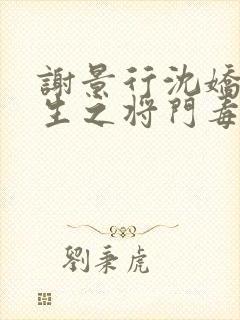 謝景行沈嬌
生之將門毒
劉秉虎